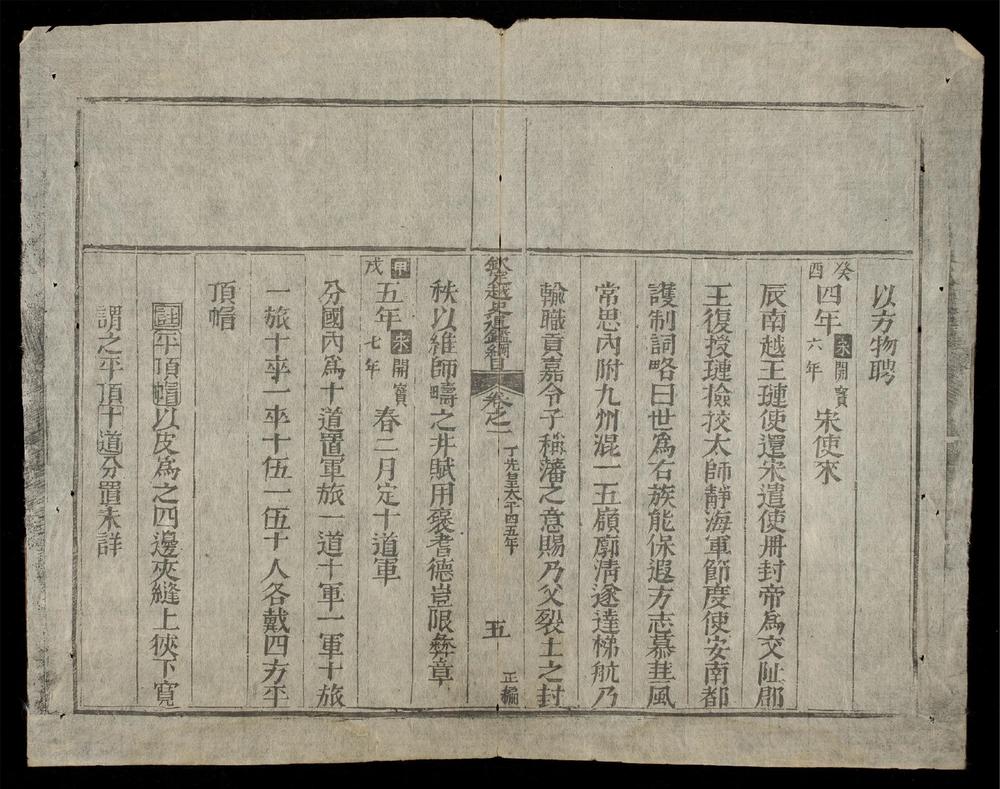 以方物聘
癸酉四年宋開寶六年宋使來
辰南越王璉使還宋遣使册封帝爲交阯郡
王復授璉撿挍太師靜海軍節度使安南都
護制詞略曰世爲右族能保遐方志慕華風
常思內附九州混一五嶺廓淸遂達梯航乃
輸職貢嘉令子稱藩之意賜乃父裂土之封
秩以維師疇之井賦用褒耆德豈限彝章
甲戌五年宋開寶七年春二月定十道軍
分國內爲十道置軍旅一道十軍一軍十旅
一旅十卒一卒十伍一伍十人各戴四方平
頂帽
註平頂帽以皮爲之四邊夾縫上狹下寬
謂之平頂十道分置未詳
欽定越史通鑑綱目卷之一丁先皇太平四五年五正編